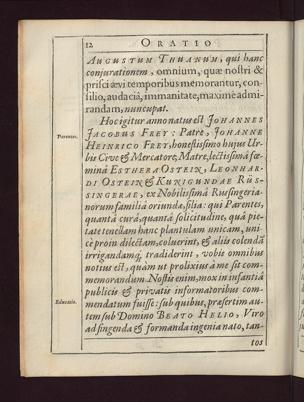 12 ORATIO
AUGUSTUM THUANUM, qui hanc
conjurationem, omnium, quæ nostri &
prisci ævi temporibus memorantur, con-
silio, audaciâ, immanitate, maxime admi-
randam, nuncupat.
Parentes.
Hoc igitur anno natus est JOHANNES
JACOBUS FREY: Patre, JOHANNE
HEINRICO FREY, honestissimo hujus Ur-
bis Cive & Mercatore, Matre, lectissimâ fœ-
minâ ESTHERA OSTEIN, LEONHAR-
DI OSTEIN & KUNIGUNDAE RÜS-
SINGERAE, ex Nobilissimâ Russingeria-
norum familiâ oriundæ, filiâ: qui Parentes,
quantâ curâ, quantâ solicitudine, quâ pie-
tate tenellam hanc plantulam unicam, uni-
cè proin dilectam, coluerint, & aliis colendā
irrigandamq́; tradiderint, vobis omnibus
notius est, quàm ut prolixius à me sit com-
memorandum. Nostis enim, mox in infantiâ
publicis & privatis informatoribus com-
mendatum fuisse: sub quibus, præsertim au-
Educatio.
tem sub Domino BEATO HELIO, Viro
ad singenda & formanda ingenia nato, tan-
tos